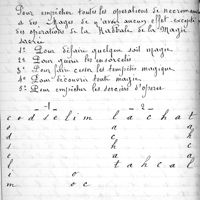 Pour empêcher toutes les operations de necroman
a des Mages de n'avoir aucun effet excepté
des operations de la Kabbale de la Magie
sacrée
1º Pour défaire quelque soit magie
2º Pour guérir les ensorcelés
3º Pour faire cesser les tempêtes magiques
4º Pour découvrir toute magie
5º Pour empêcher les sorciers d'opérer
1 2
c o d s e l i m l a c h a t
o a a
d c h
s h c
e a a
l t a h c a l
i o
m o c